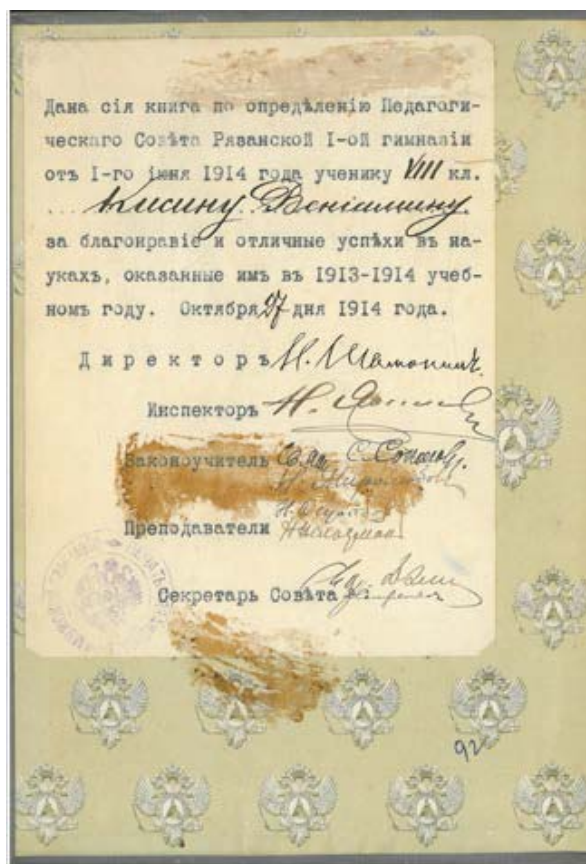 Дана сія книга по опредѣленію Педагоги-
ческаго Совѣта Рязанской I-ой гимназіи
отъ I-го іюня 1914 года ученику VIII кл.
Кисину Веніамину.
за благонравіе и отличные успѣхи въ на-
укахъ, оказанные имъ въ 1913-1914 учеб-
номъ году. Октября 27 дня 1914 года.
Директоръ
Инспекторъ Н.
Законоучитель С.
Преподаватели
Секретарь Совѣта
92